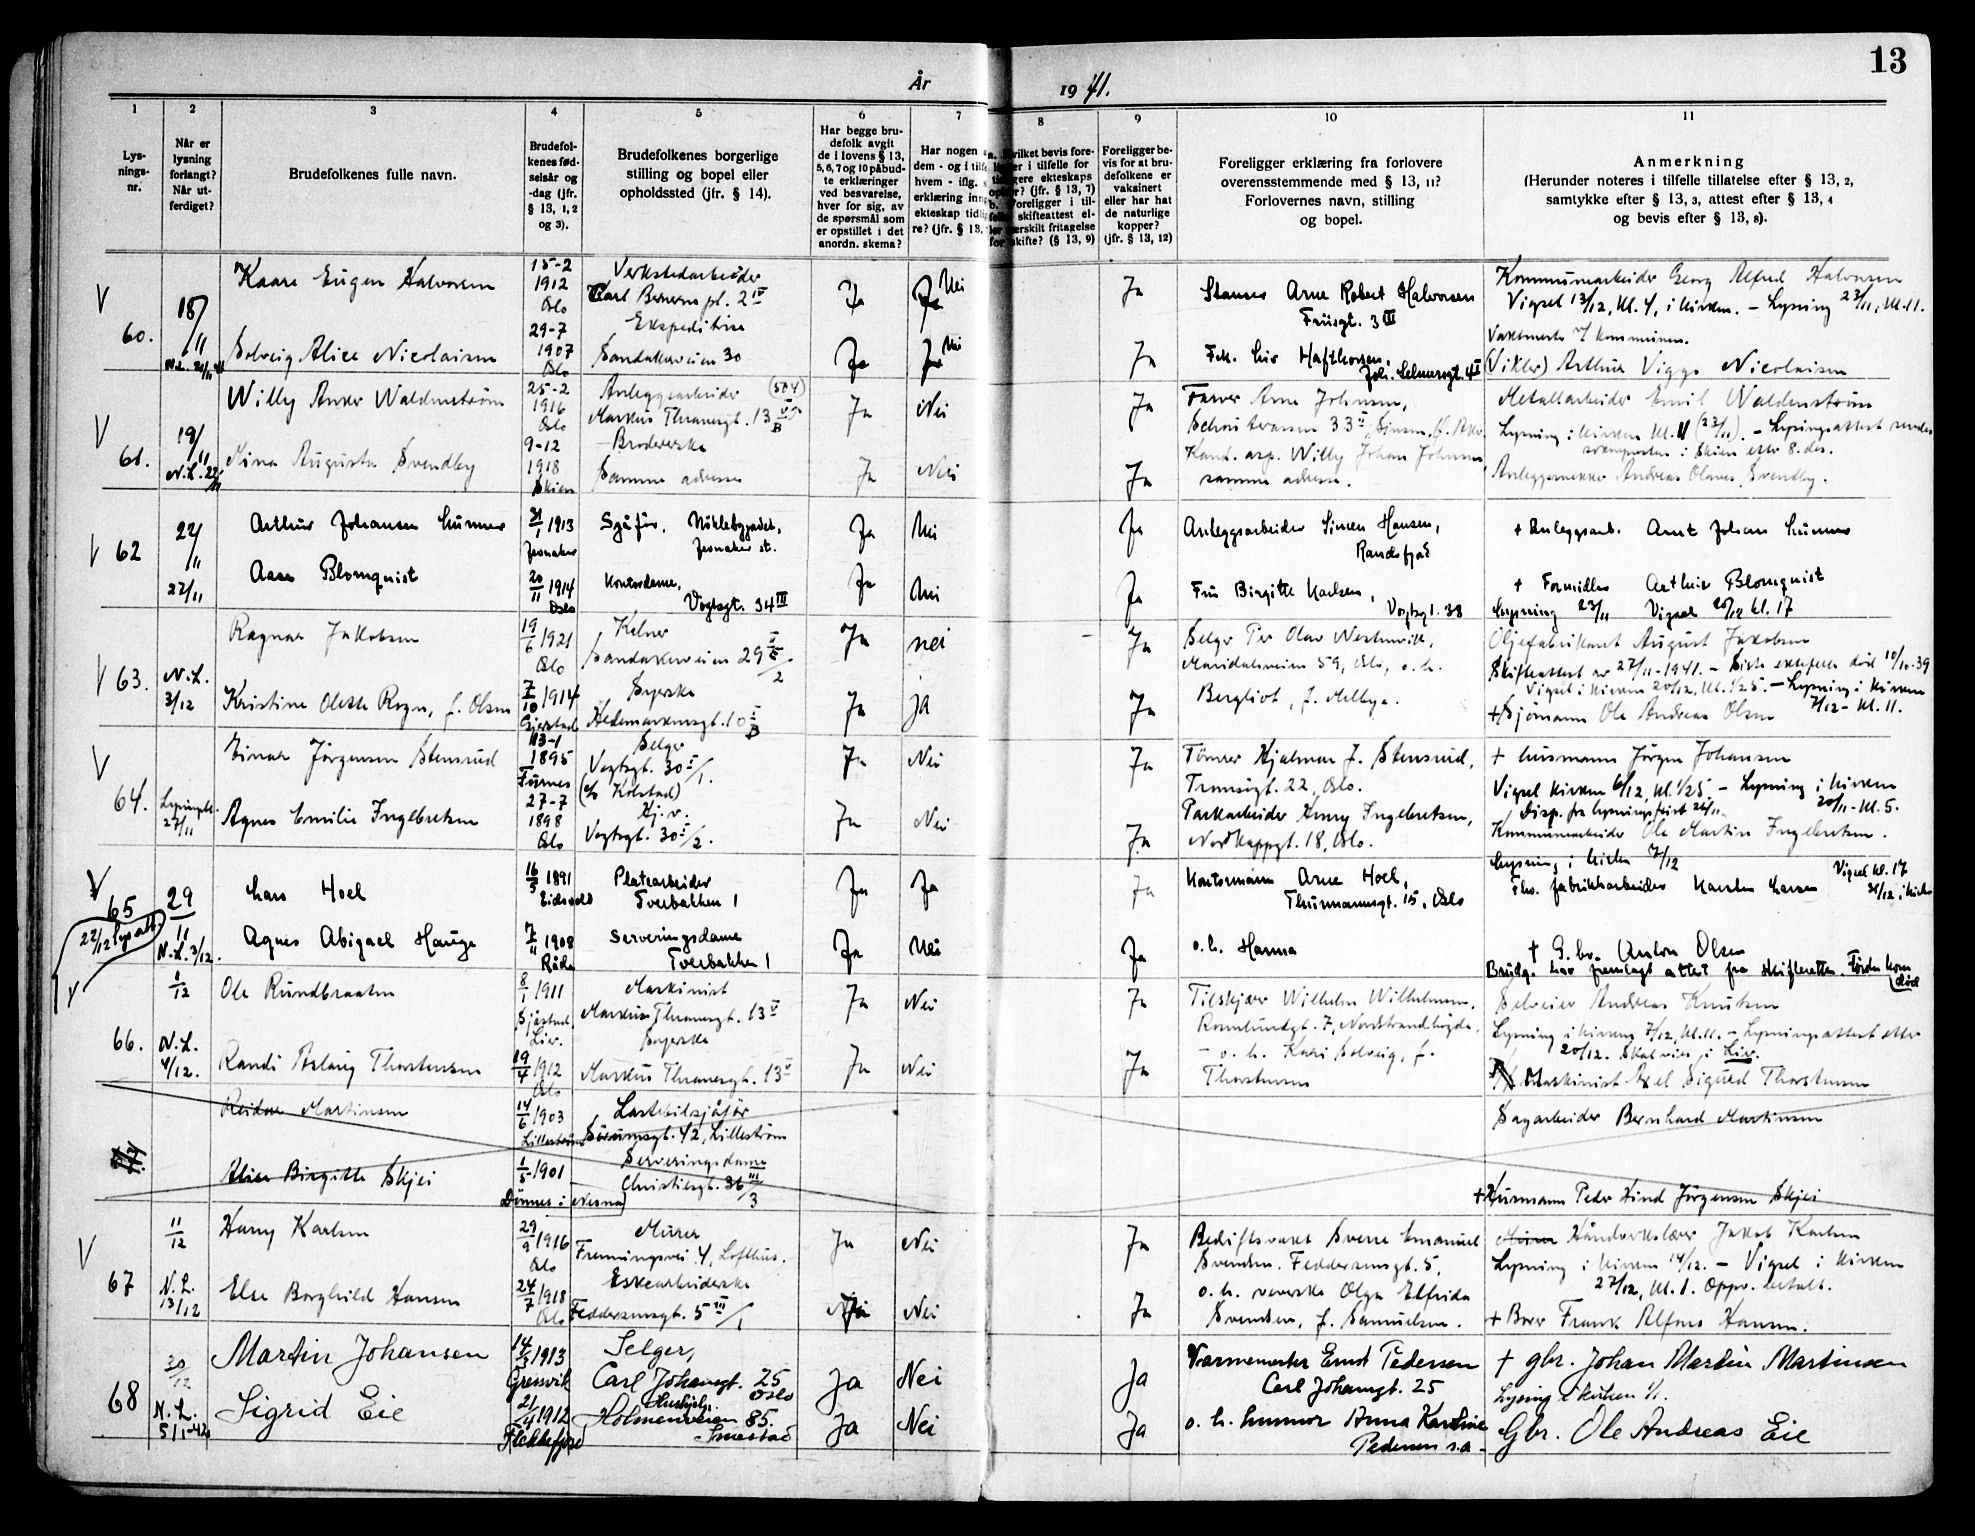 13
År 1941.
1
Lys-
nings-
nr.
2
Når er
lysning
forlangt?
Når ut-
ferdiget?
3
Brudefolkenes fulle navn.
4
Brudefol-
kenes fød-
selsår og
-dag (jfr.
§ 13, 1, 2
og 3).
5
Brudefolkenes borgerlige
stilling og bopel eller
opholdssted (jfr. § 14).
6
Har begge bru-
defolk avgit
de i lovens § 13,
5, 6, 7 og 10 påbud-
te erklæringer
ved besvarelse,
hver for sig, av
de spørsmål som
er opstillet i det
anordn. skema?
7
Har nogen
dem - og i tilf
hvem - iflg.
erklæring inng
ekteskap tidlig
re? (jfr. § 13,
8
hvilket bevis fore-
i tilfelle for
ekteskaps
? (jfr. § 13, 7)
b. Foreligger i til-
skifteattest el-
særskilt fritagelse
for skifte? (§ 13, 9)
9
Foreligger be-
vis for at bru-
defolkene er
vaksinert
eller har hat
de naturlige
kopper?
(jfr. § 13, 12)
10
Foreligger erklæring fra forlovere
overensstemmende med § 13, 11?
Forlovernes navn, stilling
og bopel.
11
Anmerkning
(Herunder noteres i tilfelle tillatelse efter § 13, 2,
samtykke efter § 13, 3, attest efter § 13, 4
og bevis efter § 13, 8).
V 60.
18/11
Kaare Eugen Halvorsen
15-2
1912
Oslo
Verkstedarbeider
Carl Berners pl. 2 IV
Ja
Nei
Ja
Stanser Arne Robert Halvorsen
Friisgt. 3 III
Kommunearbeider Georg Alfred Halvorsen
Vigsel 13/12, kl. 4, i kirken. – Lysning 23/11, kl. 11.
Solveig Alice Nicolaisen
29-7
1907
Oslo
Ekspeditrise
Sandakerveien 30
Ja
Nei
Ja
Joh. Selmersgt. 4 I
Vaktmester v/ kommunen.
(Vikler) Arthur Viggo Nicolaisen
V 61.
19/11
N.L. 22/11
Willy Anker Waldenstrøm
25-2
1916
Oslo
Anleggsarbeider (504)
Markus Thranesgt. 13 B
Ja
Nei
Ja
Farver Arne Johnsen,
Metallarbeider Emil Waldenstrøm
Lysning i kirken kl. 11 (23/11). – Lysingsattest sendes
sogneprest i Skien etter 8. des.
Nina Augusta Svendby
9-12
1918
Skien
Brodererske
Samme adresse
Ja
Nei
Ja
Kand. asp. Willy Johan Johnsen,
samme adresse.
Anleggssnekker Andreas Olaves Svendby.
V 62
22/11
22/11
Arthur Johansen Lunner
21/1 1913
Jevnaker
Sjåfør,
Jevnaker st.
Ja
Nei
Ja
Anleggsarbeider Simen Hansen,
Randsfjord
+ Anleggsarb. Amt Johan Lunner
Aase Blomquist
20/11 1914
Oslo
Kontordame,
Vogtsgt. 34 III
Ja
Nei
Ja
Fru Birgitte Karlsen,
Vogtsgt. 38
+ Formidler Arthur Blomquist
Lysning 23/11 Vigsel 20/12 kl. 17
V 63.
N.L.
3/12
Ragnar Jakobsen
19/6 1921
Oslo
Kelner
Sandakerveien 29 II/2
Ja
nei
-
Ja
Selger Per Olav Westervik,
Maridalsveien 59, Oslo, o. h.
Oljefabrikant August Jakobsen
Skifteattest av 27/11-1941. – Siste ektefelle død 10/10-39
Vigsel i kirken 20/12, kl. 1/2 5. – Lysning i kirken
7/12 - kl. 11.
Kristine Olette Rogn, f. Olsen
7/10 1914
Gjerstad
Syerske
Hedemarkensgt. 10 B
Ja
ja
Ja
Bergliot, f. Melbye.
+ Sjømann Ole Andreas Olsen
V 64.
27/11
Einar Jörgensen Stensrud
13-1
1895
Furnes
Selger
Vogtsgt. 30 I/1.
(c/o Kolstad)
Ja
Nei
Ja
Tömrer Hjalmar J. Stensrud,
Tromsögt. 22, Oslo.
+ Husmann Jörgen Johansen
Vigsel kirken 6/12, kl. 1/2 5. – Lysning i kirken
Disp. fra lysningsfrist 26/11. 20/11 - kl. 5.
Agnes Emilie Ingebretsen
27-7
1898
Oslo
Hj. v.
Vogtsgt. 30 I/2.
Ja
Nei
Ja
Parkarbeider Henry Ingebretsen,
Nordkappgt. 18, Oslo.
Kommunearbeider Ole Martin Ingebretsen.
V 65
22/12 lys.att.
29/11
N.L. 3/12.
Lars Hoel
16/5 1891
Eidsvold
Platearbeider
Tverbakken 1
Ja
Ja
Ja
Kontormann Arne Hoel,
Thurmannsgt. 15, Oslo
Lysning i kirken 7/12
Fhv. fabrikkarbeider Karsten Larsen Vigsel kl. 17
Agnes Abigael Hauge
7/11 1908
Råde
Serveringsdame
Tverbakken 1
Ja
Nei
Ja
o. h. Hanna
† G. br. Anton Olsen
Brudg. har fremlagt attest fra skifteretten. Første kone
død
V 66.
1/12
N.L.
4/12.
Ole Rundbraaten
8/1 1911
Sjåstad,
Lier.
Maskinist
Markus Thranesgt. 13 V
Ja
Nei
Ja
Tilskjærer Wilhelm Wilhelmsen,
Rosenlundgt. 7, Nordstrandhögda.
Selveier Andreas Knutsen
Lysning i kirken 7/12, kl. 11. – Lysningsattest etter
20/12. Skal vies i Lier.
Randi Aslaug Thorstensen
19/4 1912
Oslo
Syerske
Markus Thranesgt. 13 V
Ja
Nei
Ja
– o. h. Kari Solveig, f.
Thorstensen
Maskinist Axel Sigurd Thorstensen
67.
Reidar Martinsen
14/6 1903
Lilleström
Lastebilsjåför
Sörumsgt. 42, Lilleström
Sagarbeider Bernhard Martinsen
Alise Birgitte Skjei
1/5 1901
Dönnes i Nesna
Serveringsdame
Christiesgt. 36 III/3
+ Husmann Peder Lind Jörgensen Skjei
V 67
11/12
N.L.
13/12
Harry Karlsen
29/9 1916
Oslo
Murer
Fremningsvei 4, Lofthus.
Ja
Nei
Ja
Bedriftsvakt Sverre Emanuel
Svendsen. Feddersensgt. 5,
Håndverkslærer Jakob Karlsen
Lysning i kirken 14/12. – Vigsel i kirken
27/12, kl. 1. Oppv. betalt.
Else Borghild Hansen
24/7 1918
Oslo
Eskearbeiderske
Feddersensgt. 5 III/1
Ja
Nei
Ja
o. h. veverske Olga Elfrida
Svendsen, f. Samuelsen.
+ Borer Frank Alfons Hansen.
68
30/12
N.L.
5/1-42
Martin Johansen
14/3 1913
Gressvik
Selger,
Carl Johansgt. 25
Oslo
Ja
Nei
Ja
Varmemester Ernst Pedersen
Carl Johansgt. 25
† gbr. Johan Martin Martinsen
Lysing i kirken 1/1.
Sigrid Eie
21/4 1912
Flekkefjord
Hushjelp.
Holmenveien 85.
Smestad
Ja
Nei
Ja
o. h. hustru Anna Karoline
Pedersen s.a.
Gbr. Ole Andreas Eie